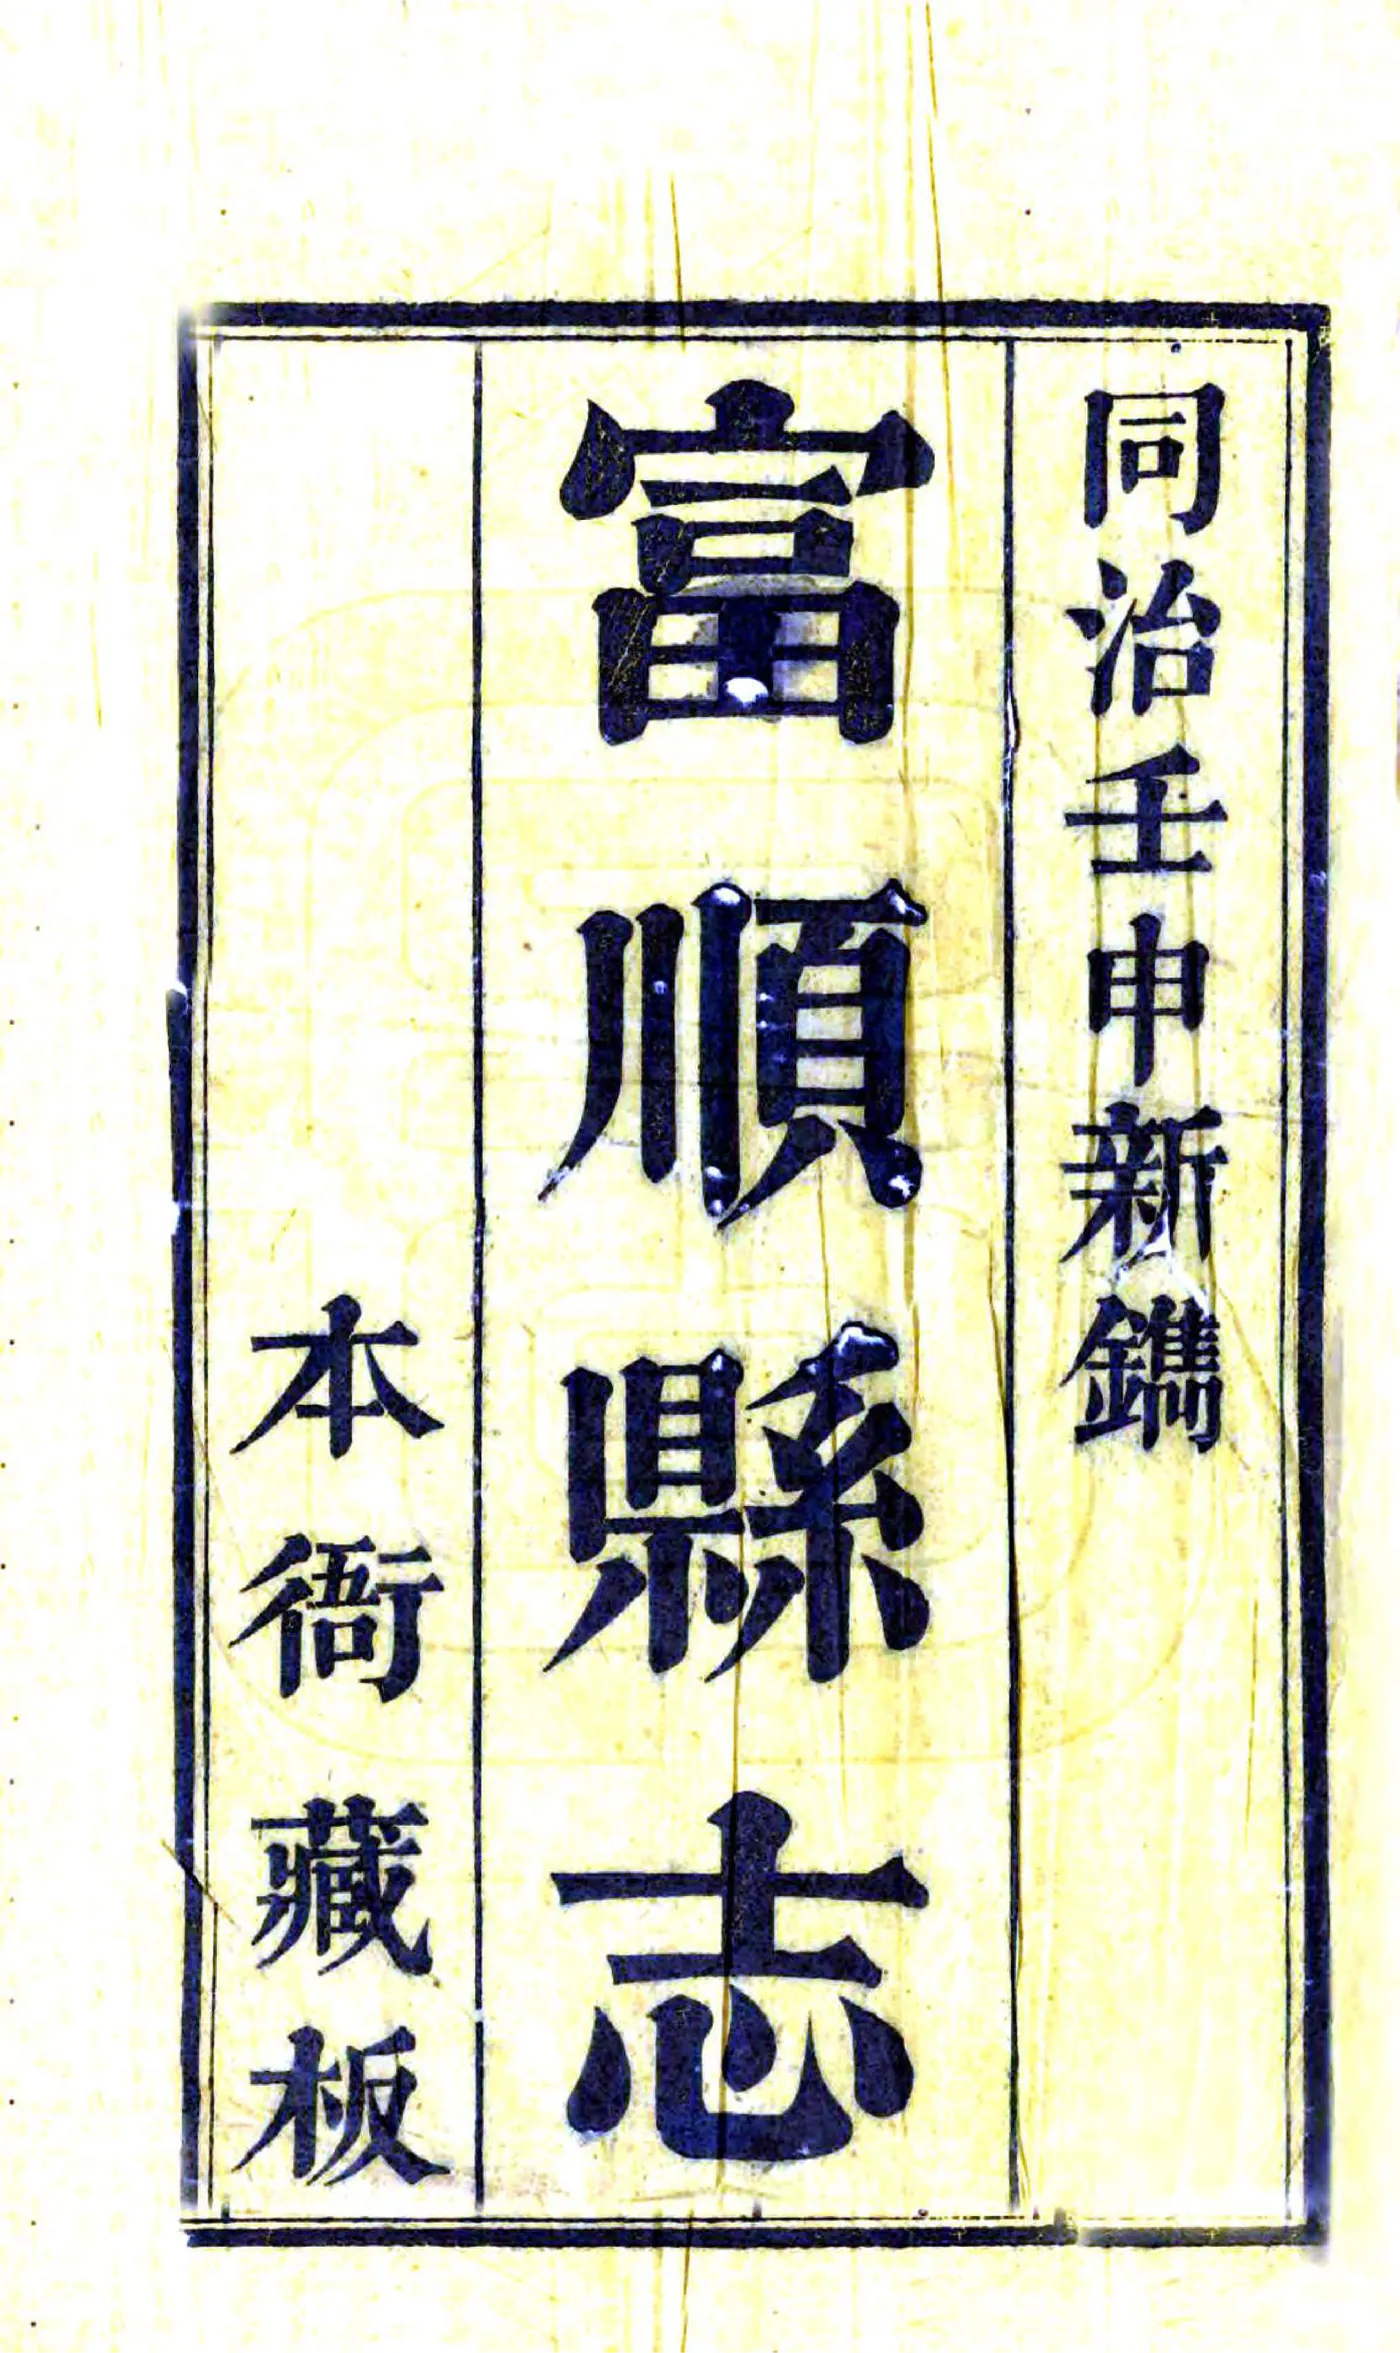 同治壬申新鐫
富順縣志
本衙藏板